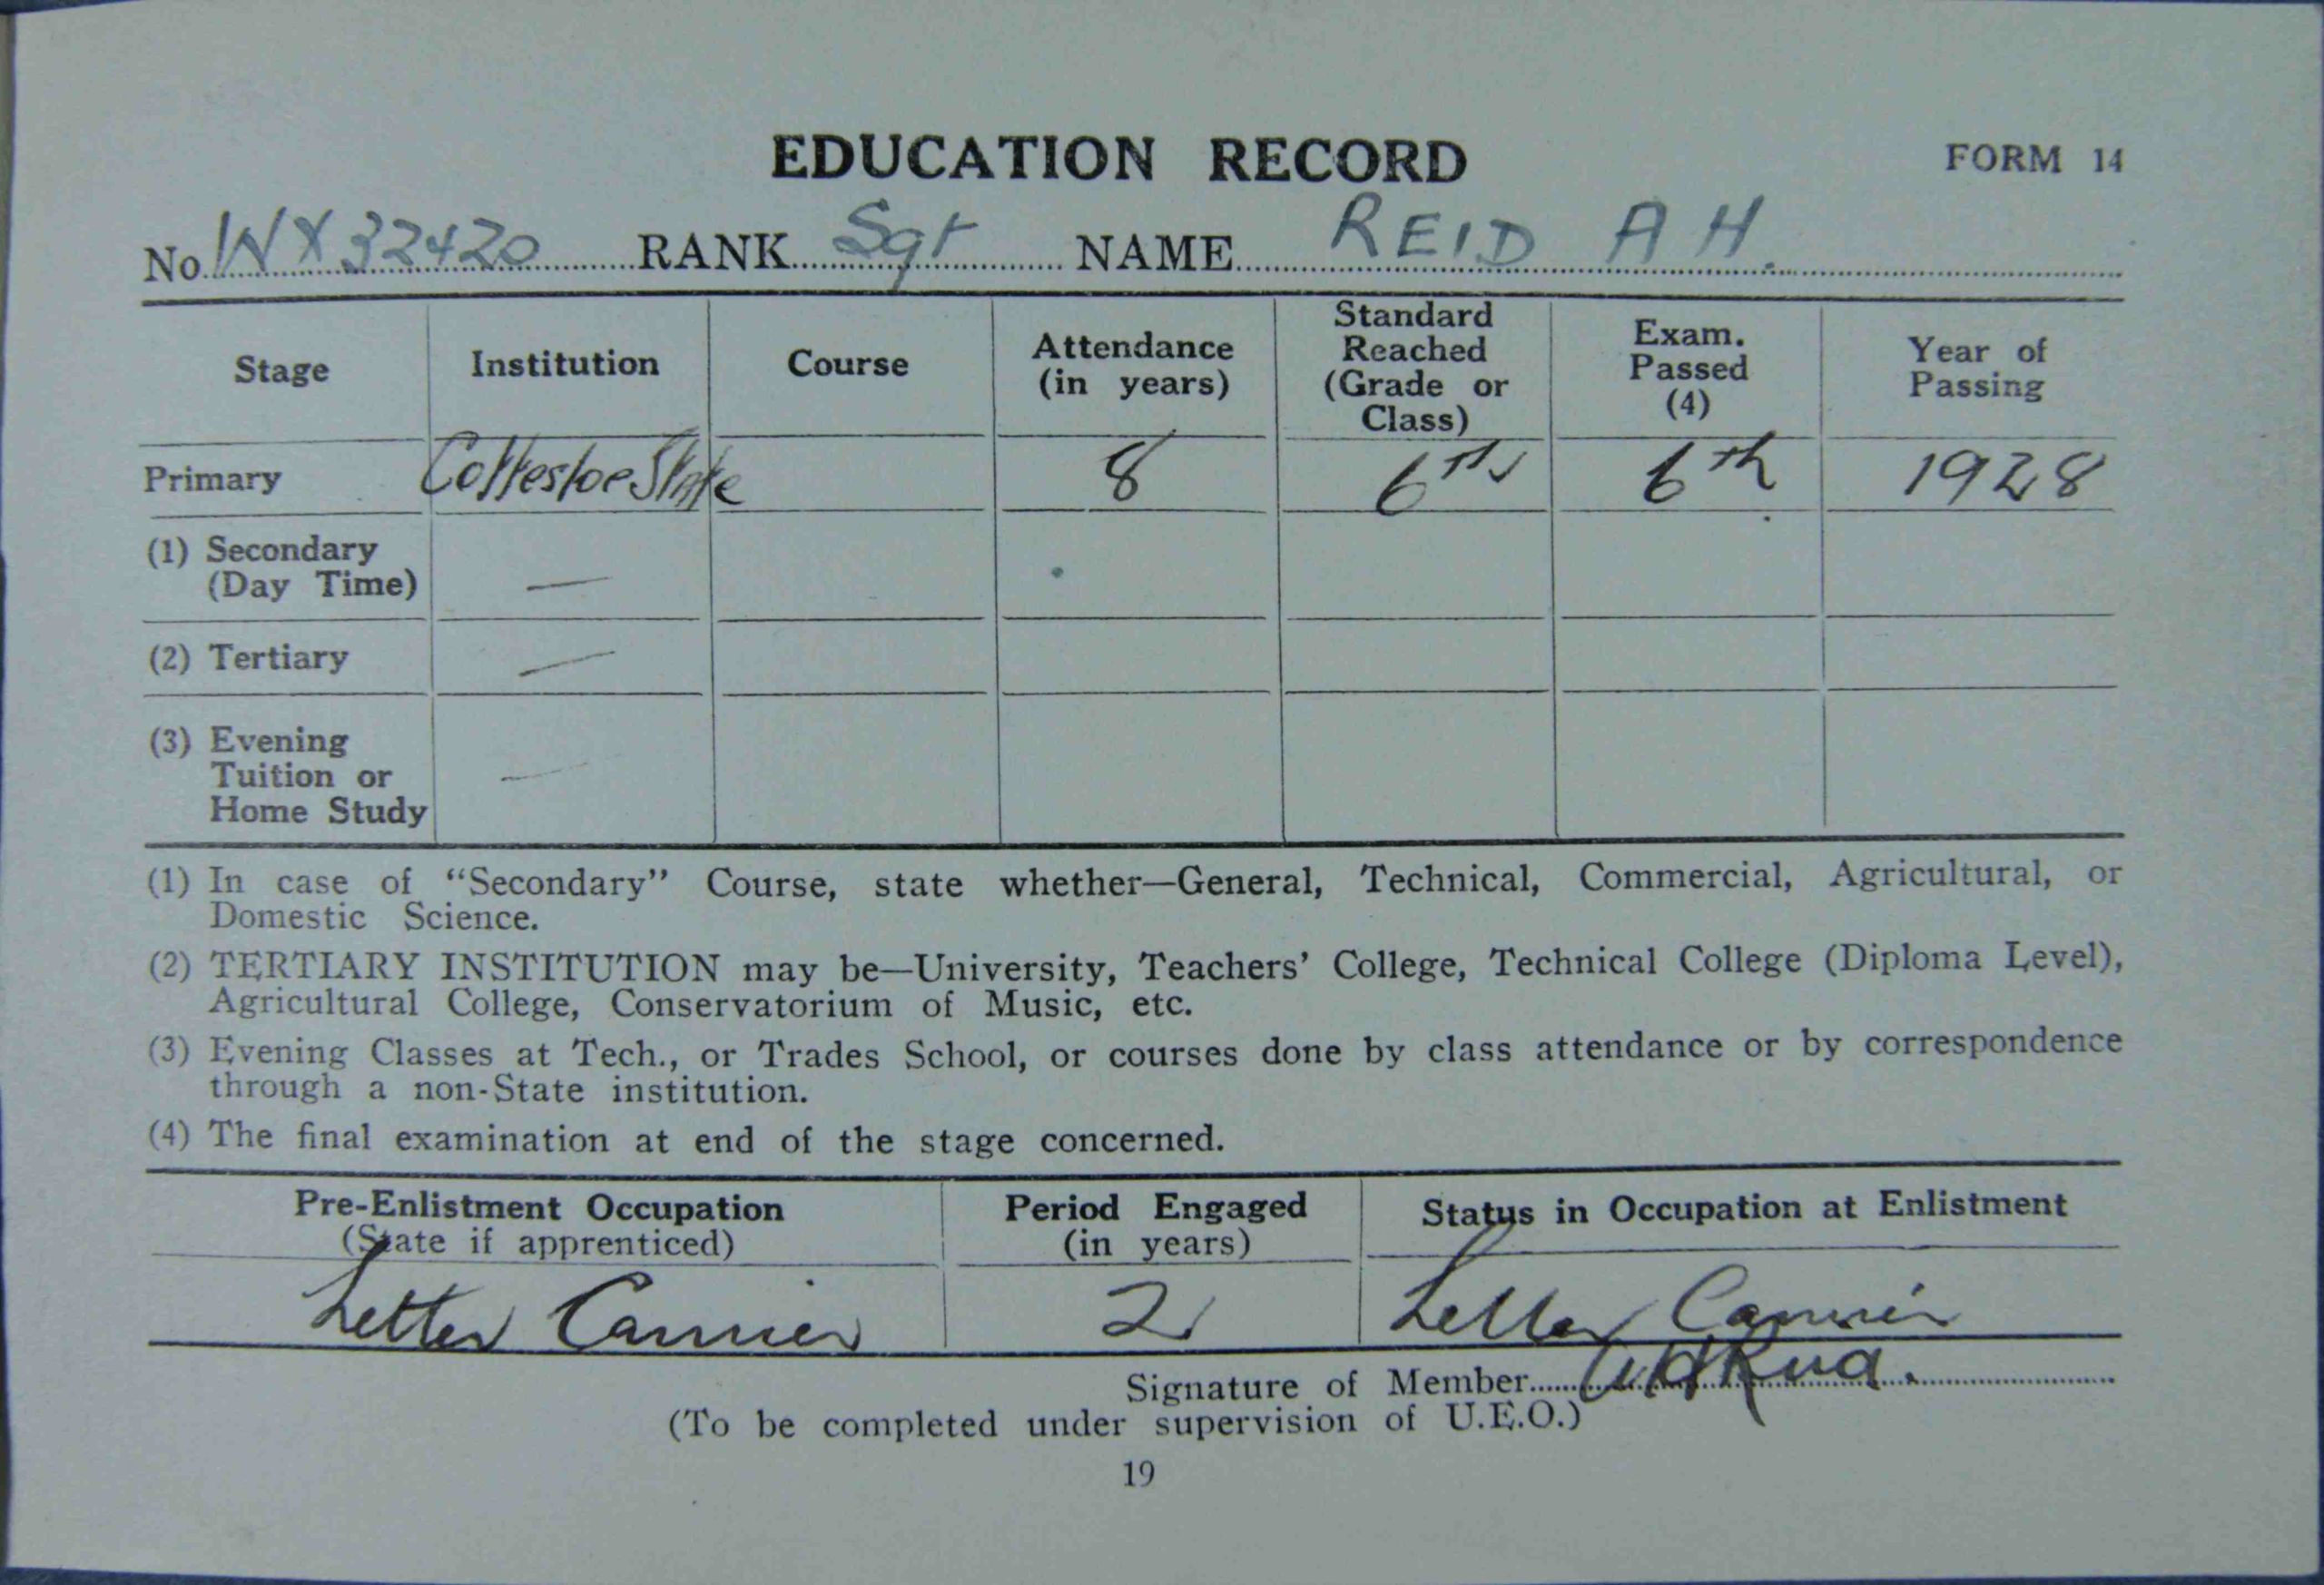 EDUCATION RECORD FORM 14
No. WX32420 RANK Sgt NAME REID A H.
Stage Institution Course Attendance (in years) Standard Reached (Grade or Class) Exam. Passed (4) Year of Passing
Primary Cottesloe State 8 6th 6th 1928
(1) Secondary
(Day Time) —
(2) Tertiary —
(3) Evening
Tuition or
Home Study —
(1) In case of “Secondary” Course, state whether—General, Technical, Commercial, Agricultural, or
Domestic Science.
(2) TERTIARY INSTITUTION may be—University, Teachers’ College, Technical College (Diploma Level),
Agricultural College, Conservatorium of Music, etc.
(3) Evening Classes at Tech., or Trades School, or courses done by class attendance or by correspondence
through a non-State institution.
(4) The final examination at end of the stage concerned.
Pre-Enlistment Occupation Period Engaged Status in Occupation at Enlistment
(State if apprenticed) (in years)
Letter Carrier 2 Letter Carrier
Signature of Member AHReid.
(To be completed under supervision of U.E.O.)
19